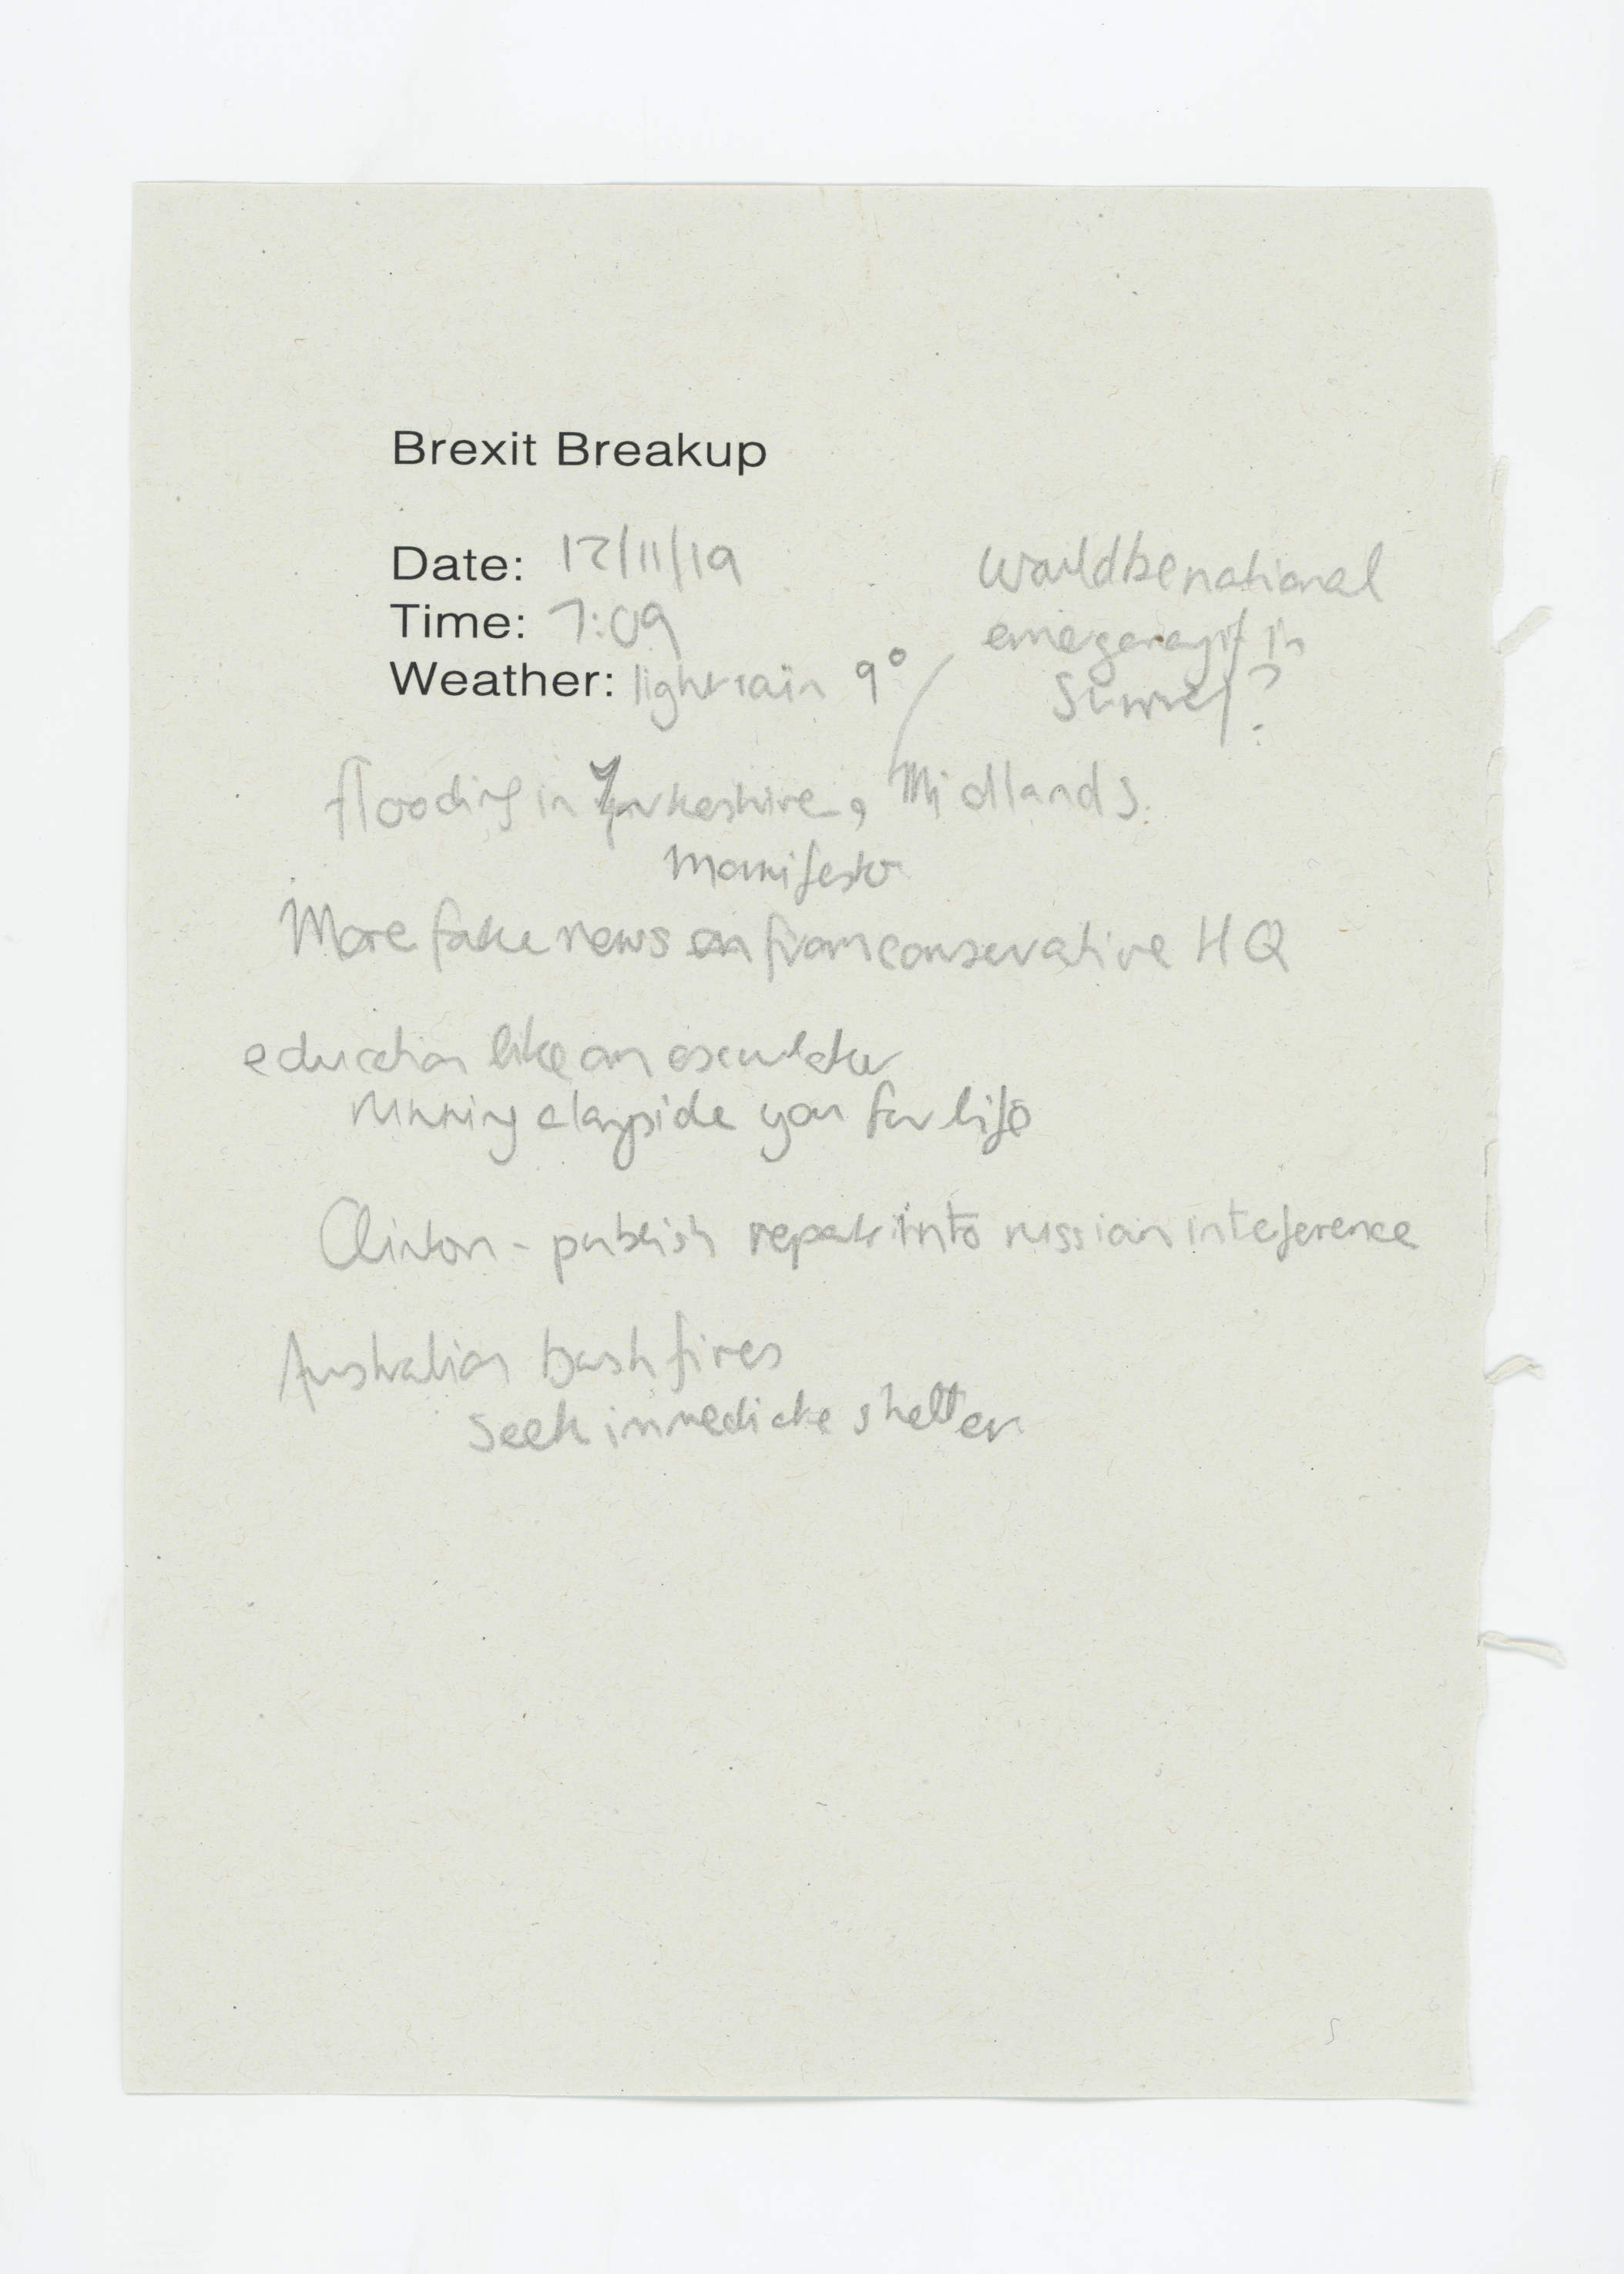 Brexit Breakup
Date: 12/11/19
Time: 7:09
Weather: light rain 9°
Would be national
emegeregy if in
Surrey?
flooding in Yorkeshire, Midlands.
Manifesto
More fake news on from conservative HQ
education like an esculator
running alongside you for life
Clinton - publish report into russian inteference
Australian bush fires
seek immediate shelter